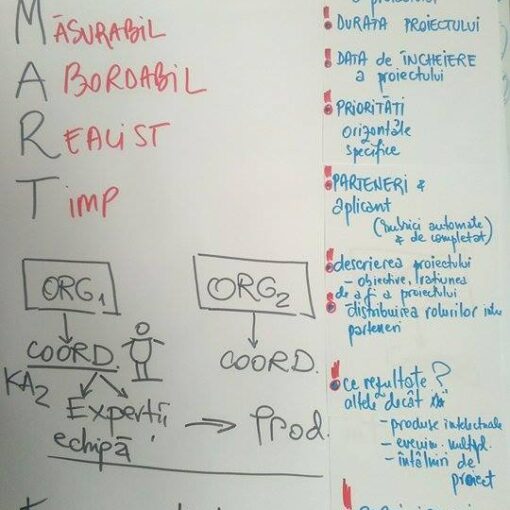 MĂSURABIL
ABORDABIL
REALIST
TIMP
ORG1
ORG2
COORD.
COORD.
KA2
Experți
echipă
Prod.
! DURATA PROIECTULUI
! DATA de ÎNCHEIERE
a proiectului
! PRIORITĂȚI
orizontale
specifice
! PARTENERI &
aplicant
(rubrici automate
& de completat)
! descrierea proiectului
- obiective, rațiunea
de a fi a proiectului
! distribuirea rolurilor între
parteneri
! ce rezultate?
altele decât
- produse intelectuale
- evenim. multipl.
- întâlniri de
proiect
!